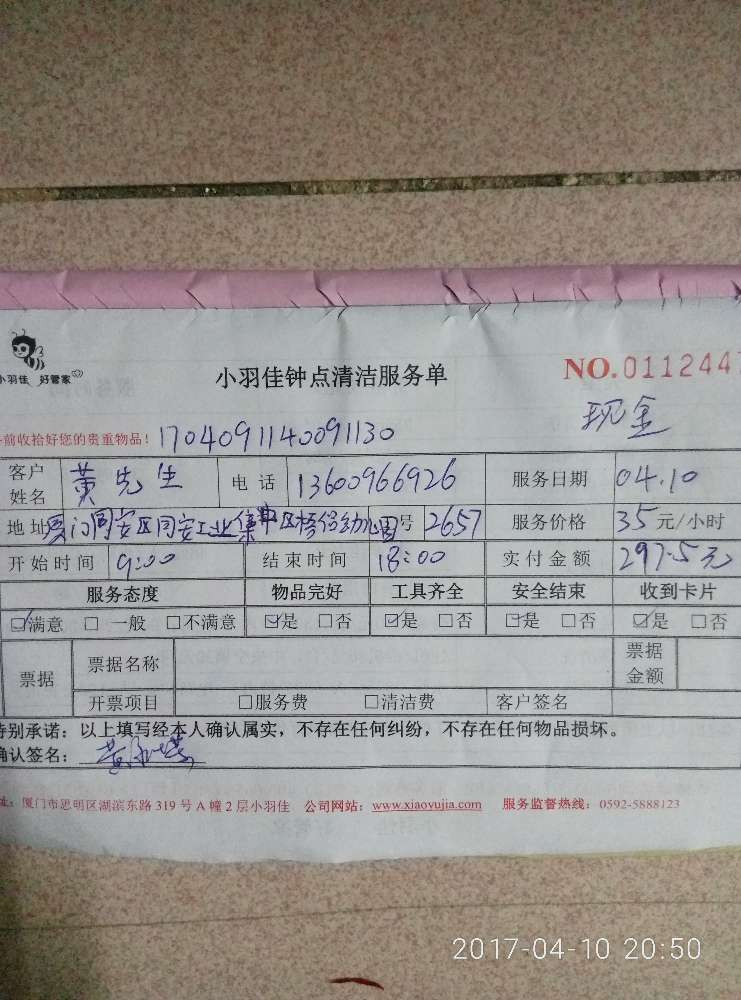 小羽佳 好管家
小羽佳钟点清洁服务单
NO.0112447
现金
前收拾好您的贵重物品！1704091140091130
客户姓名 黄先生 电话 13600966926 服务日期 04.10
地址 厦门同安区同安工业集中区梧侣幼儿园 号 2657 服务价格 35元/小时
开始时间 9:00 结束时间 18:00 实付金额 297.5元
服务态度 物品完好 工具齐全 安全结束 收到卡片
☑满意 □一般 □不满意 ☑是 □否 ☑是 □否 ☑是 □否 ☑是 □否
票据 票据名称 票据金额
开票项目 □服务费 □清洁费 客户签名
特别承诺：以上填写经本人确认属实，不存在任何纠纷，不存在任何物品损坏。
确认签名：
址：厦门市思明区湖滨东路 319 号 A 幢 2 层小羽佳 公司网站：www.xiaoyujia.com 服务监督热线：0592-5888123
2017-04-10 20:50